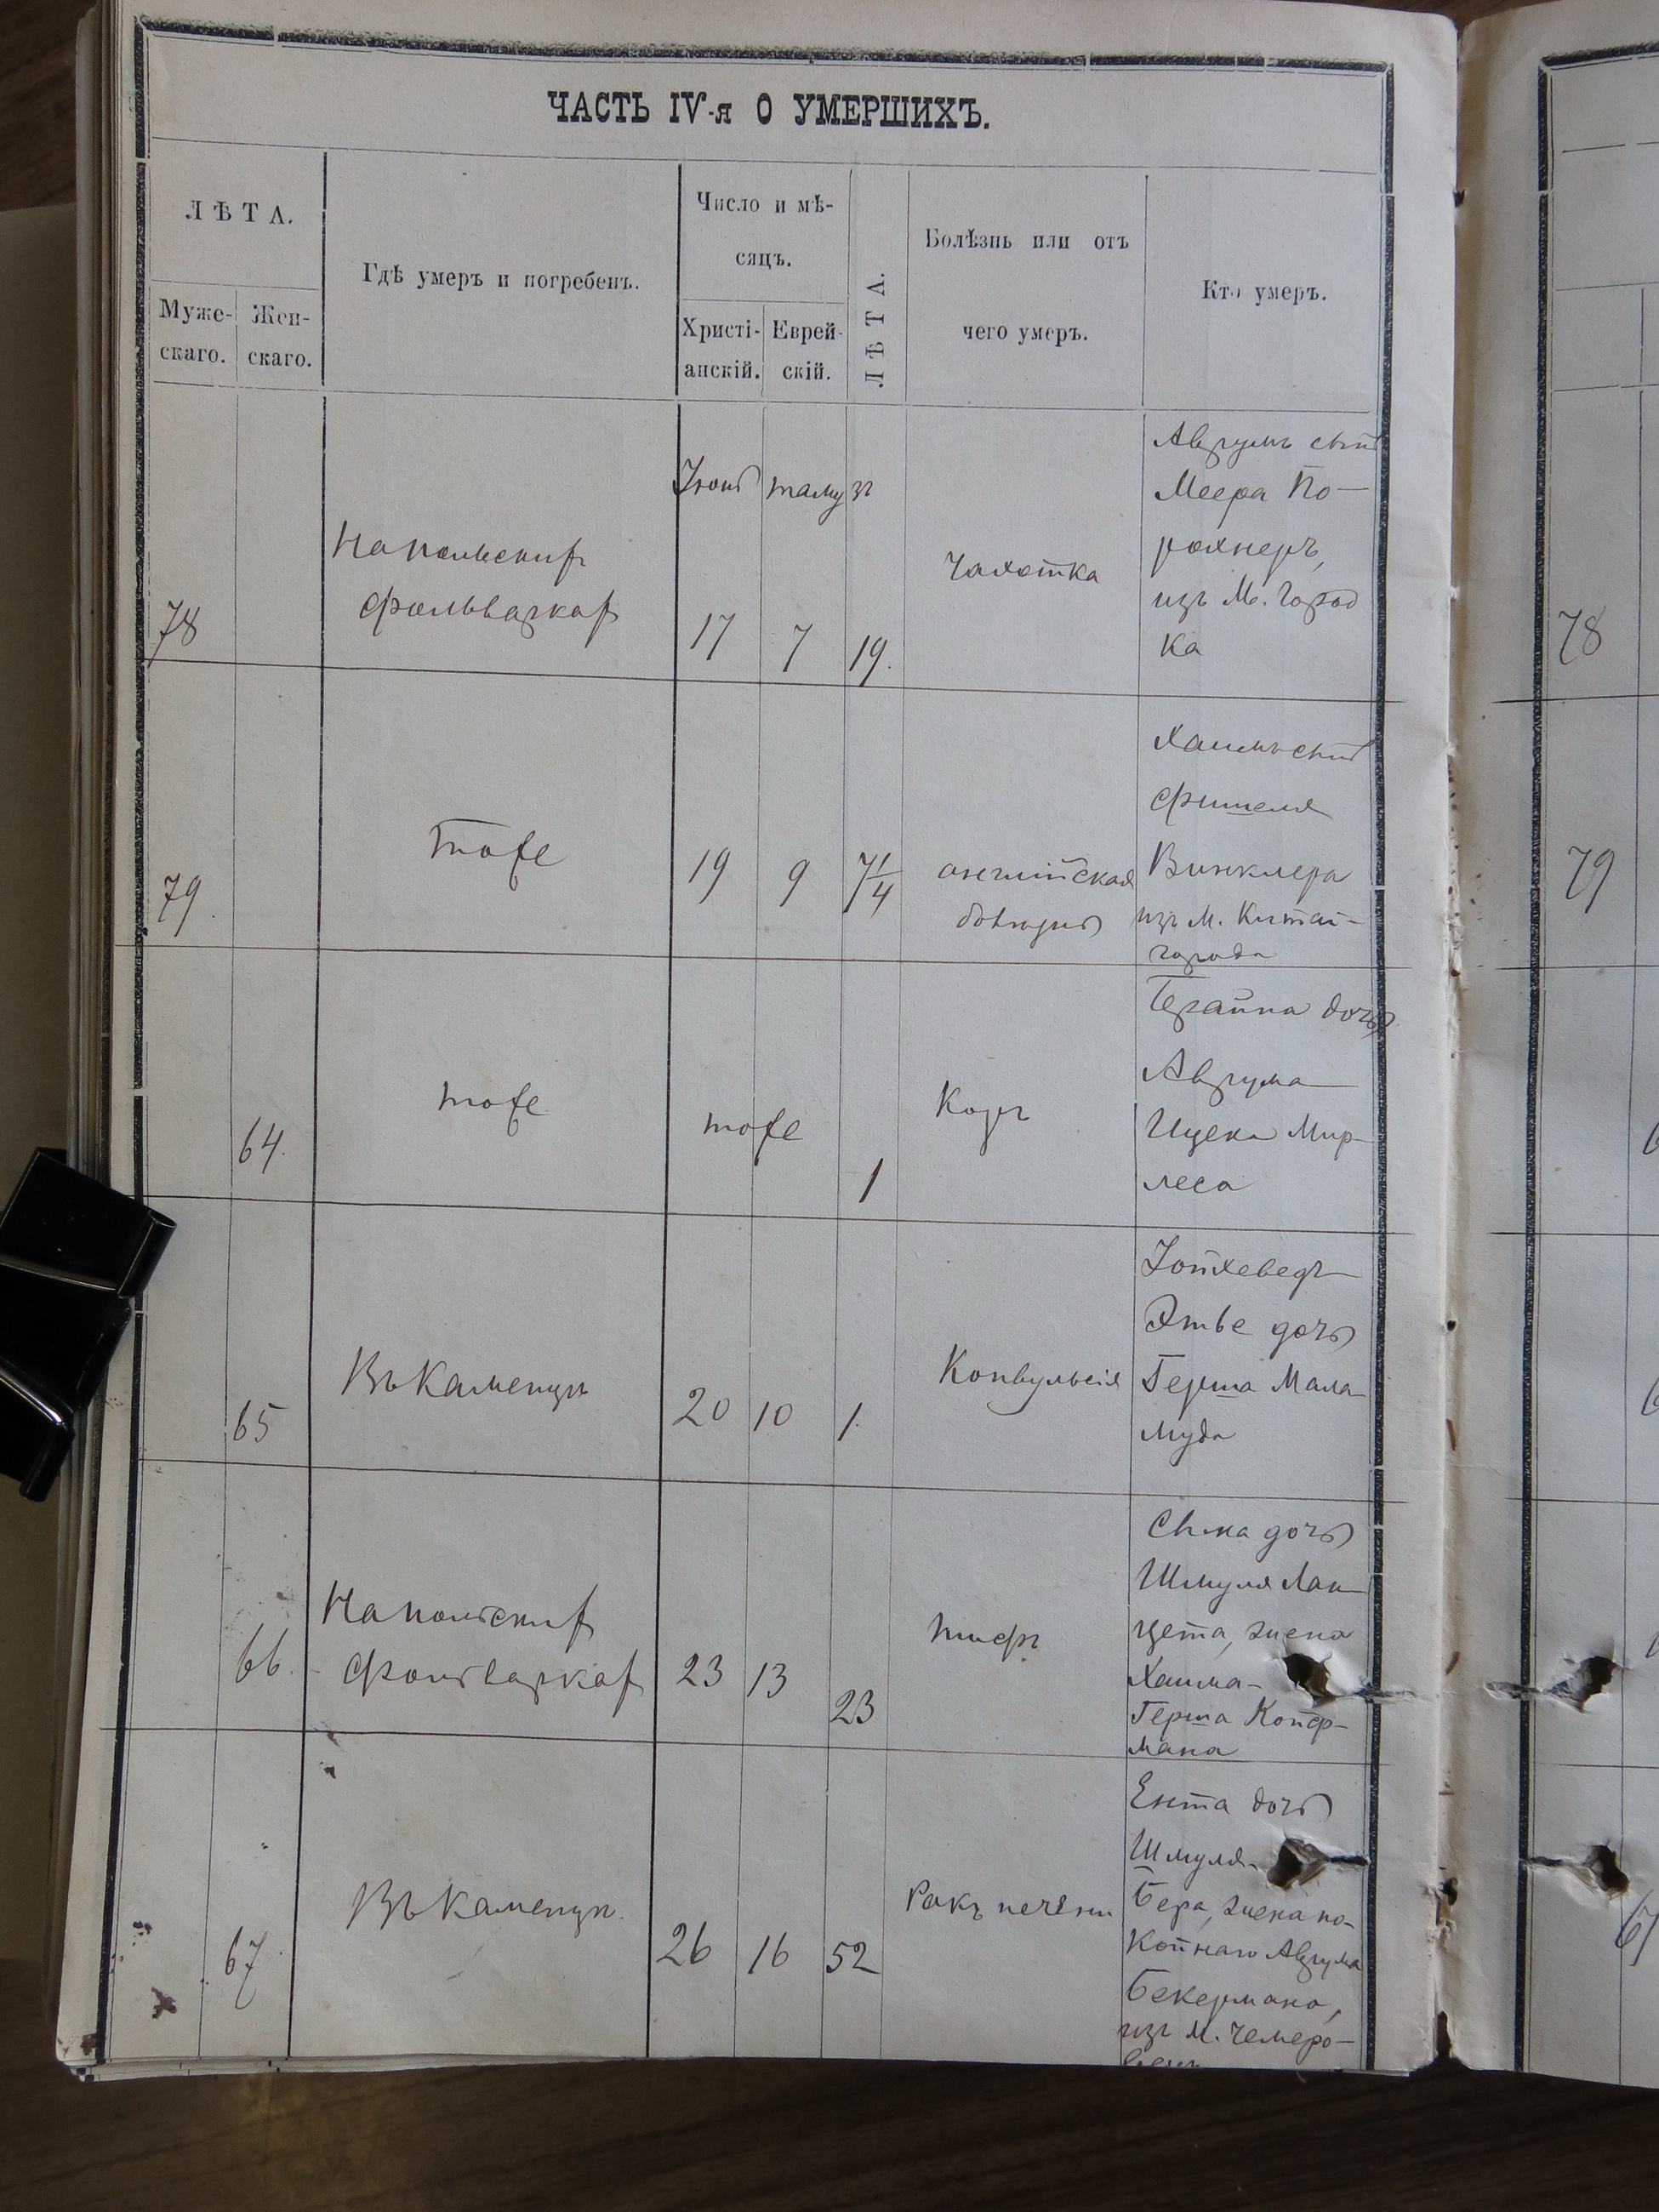 ЧАСТЬ IV-я О УМЕРШИХЪ.
ЛѢТА.
Муже-
скаго.
Жен-
скаго.
Гдѣ умеръ и погребенъ.
Число и мѣ-
сяцъ.
Христі-
анскій.
Еврей-
скій.
ЛѢТА.
Болѣзнь или отъ
чего умеръ.
Кто умеръ.
78
На польских
фольварках
Іюнь
17
тамузъ
7
19.
Чахотка
Аврумъ сынъ
Меера По-
рохнеръ,
изъ М. Город
ка
78
79
тоже
19
9
7 1/4
англійская
болезнь
Хаимъ сынъ
Фишеля
Винклера
изъ М. Китай-
города
79
64.
тоже
тоже
1
Корь
Брайна дочь
Аврума
Ицека Мир-
леса
65
Въ Каменцѣ
20
10
1.
Конвульсія
Іохеведъ
Этье дочь
Герша Мала-
муда
66.
На польских
фольварках
23
13
23
тифъ
дочь
Шмуля Лан-
цета, жена
Хаима-
Герша Койф-
мана
67
Въ Каменцѣ.
26
16
52
Ракъ печени
Ента дочь
Шмуля-
Бера, жена по-
койнаго Аврума
Бекермана,
изъ М. Чемеро-
67